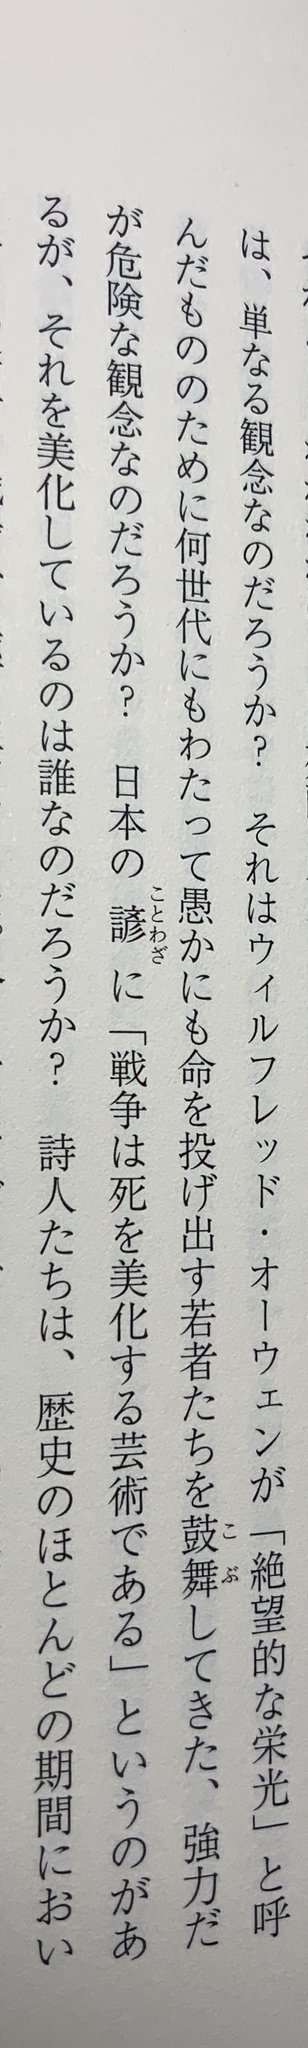 は、単なる観念なのだろうか？　それはウィルフレッド・オーウェンが「絶望的な栄光」と呼
んだもののために何世代にもわたって愚かにも命を投げ出す若者たちを鼓舞してきた、強力だ
が危険な観念なのだろうか？　日本の諺に「戦争は死を美化する芸術である」というのがあ
るが、それを美化しているのは誰なのだろうか？　詩人たちは、歴史のほとんどの期間におい